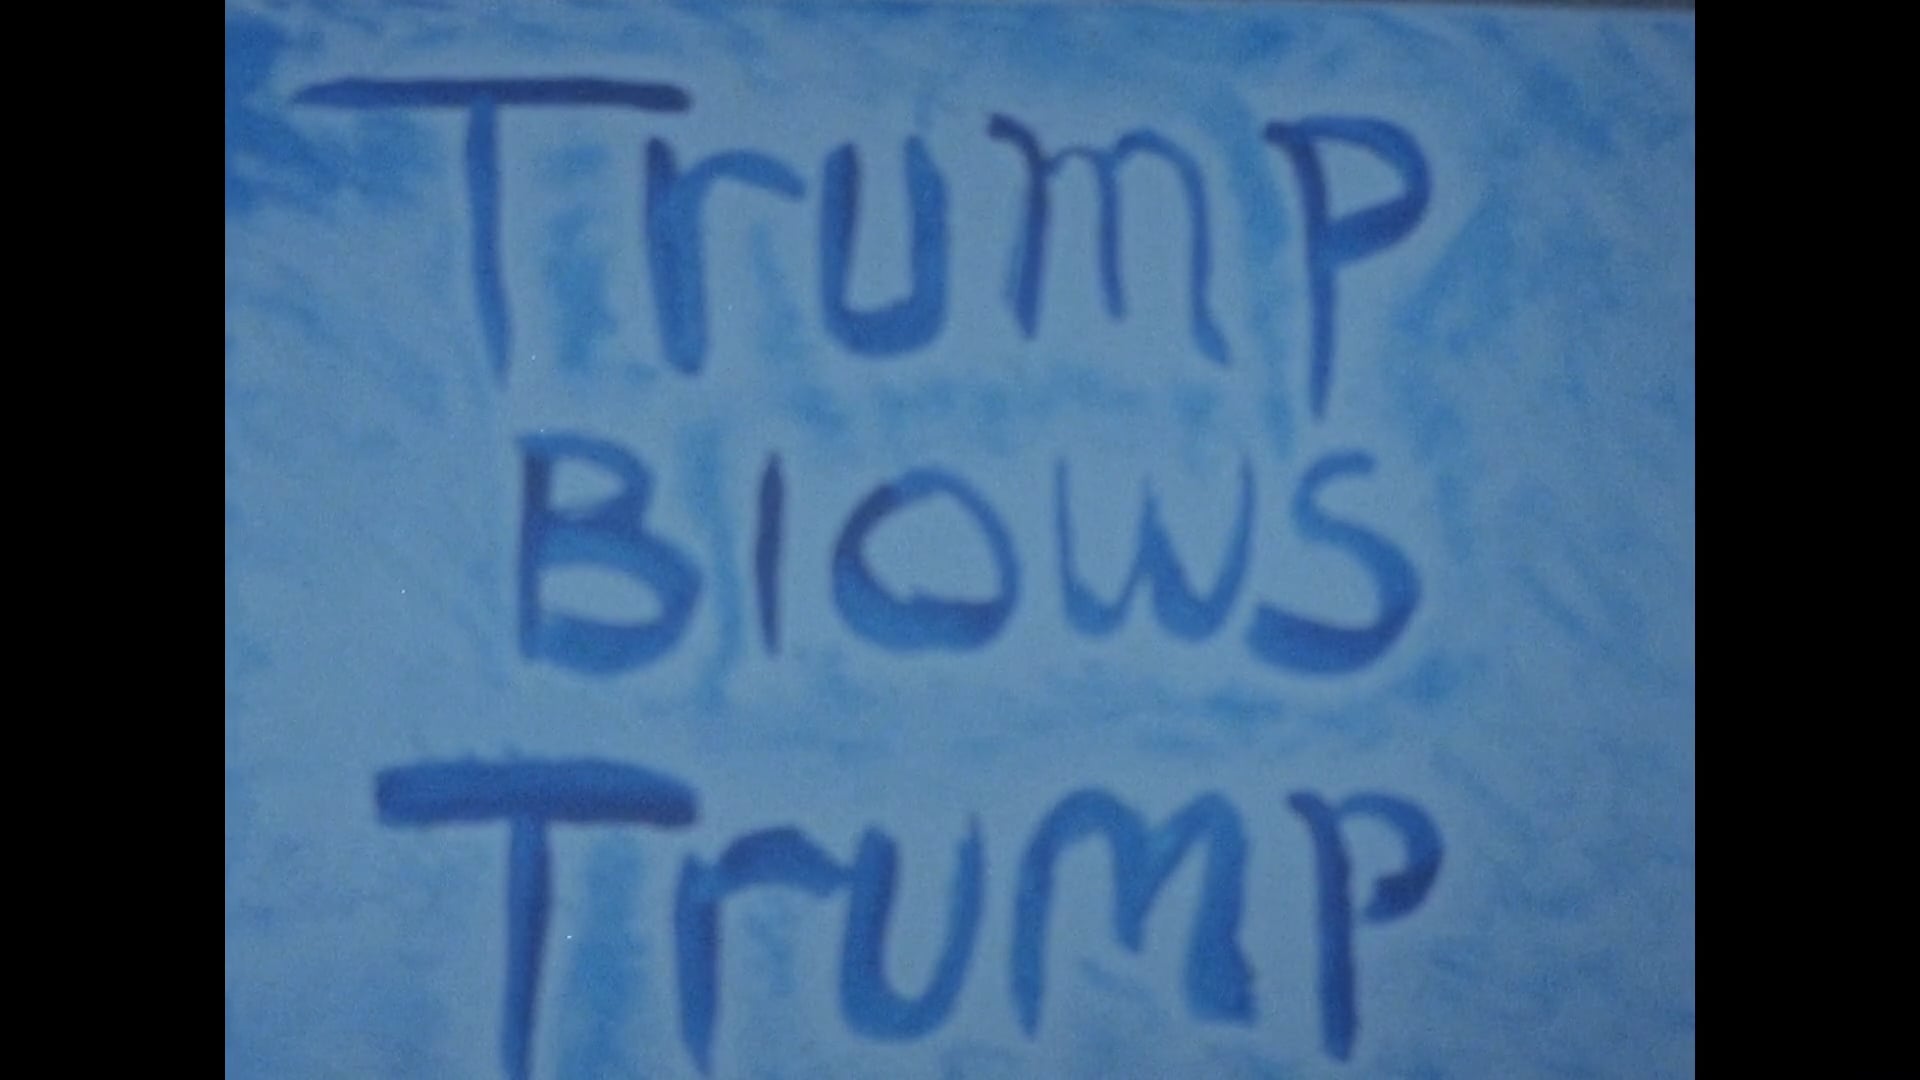 Trump
Blows
Trump